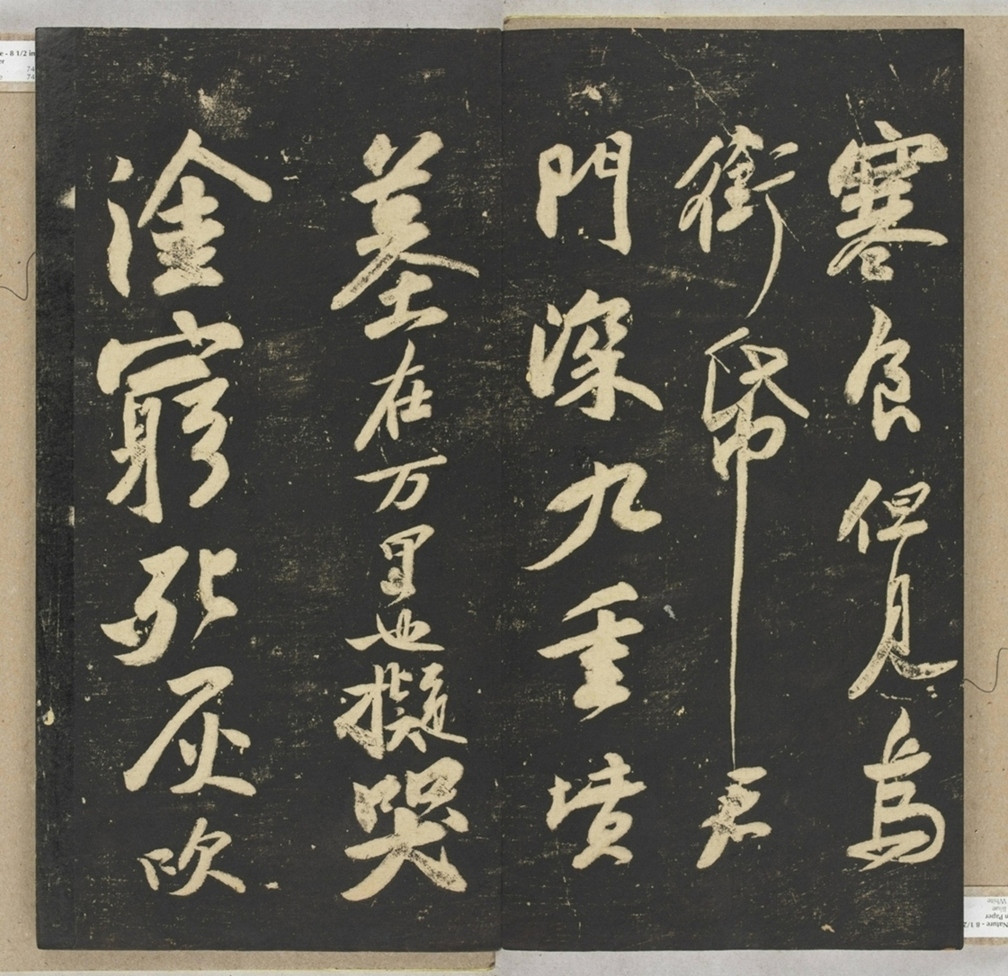 寒食但見烏
銜帋君
門深九重墳
墓在万里也擬哭
塗窮死灰吹